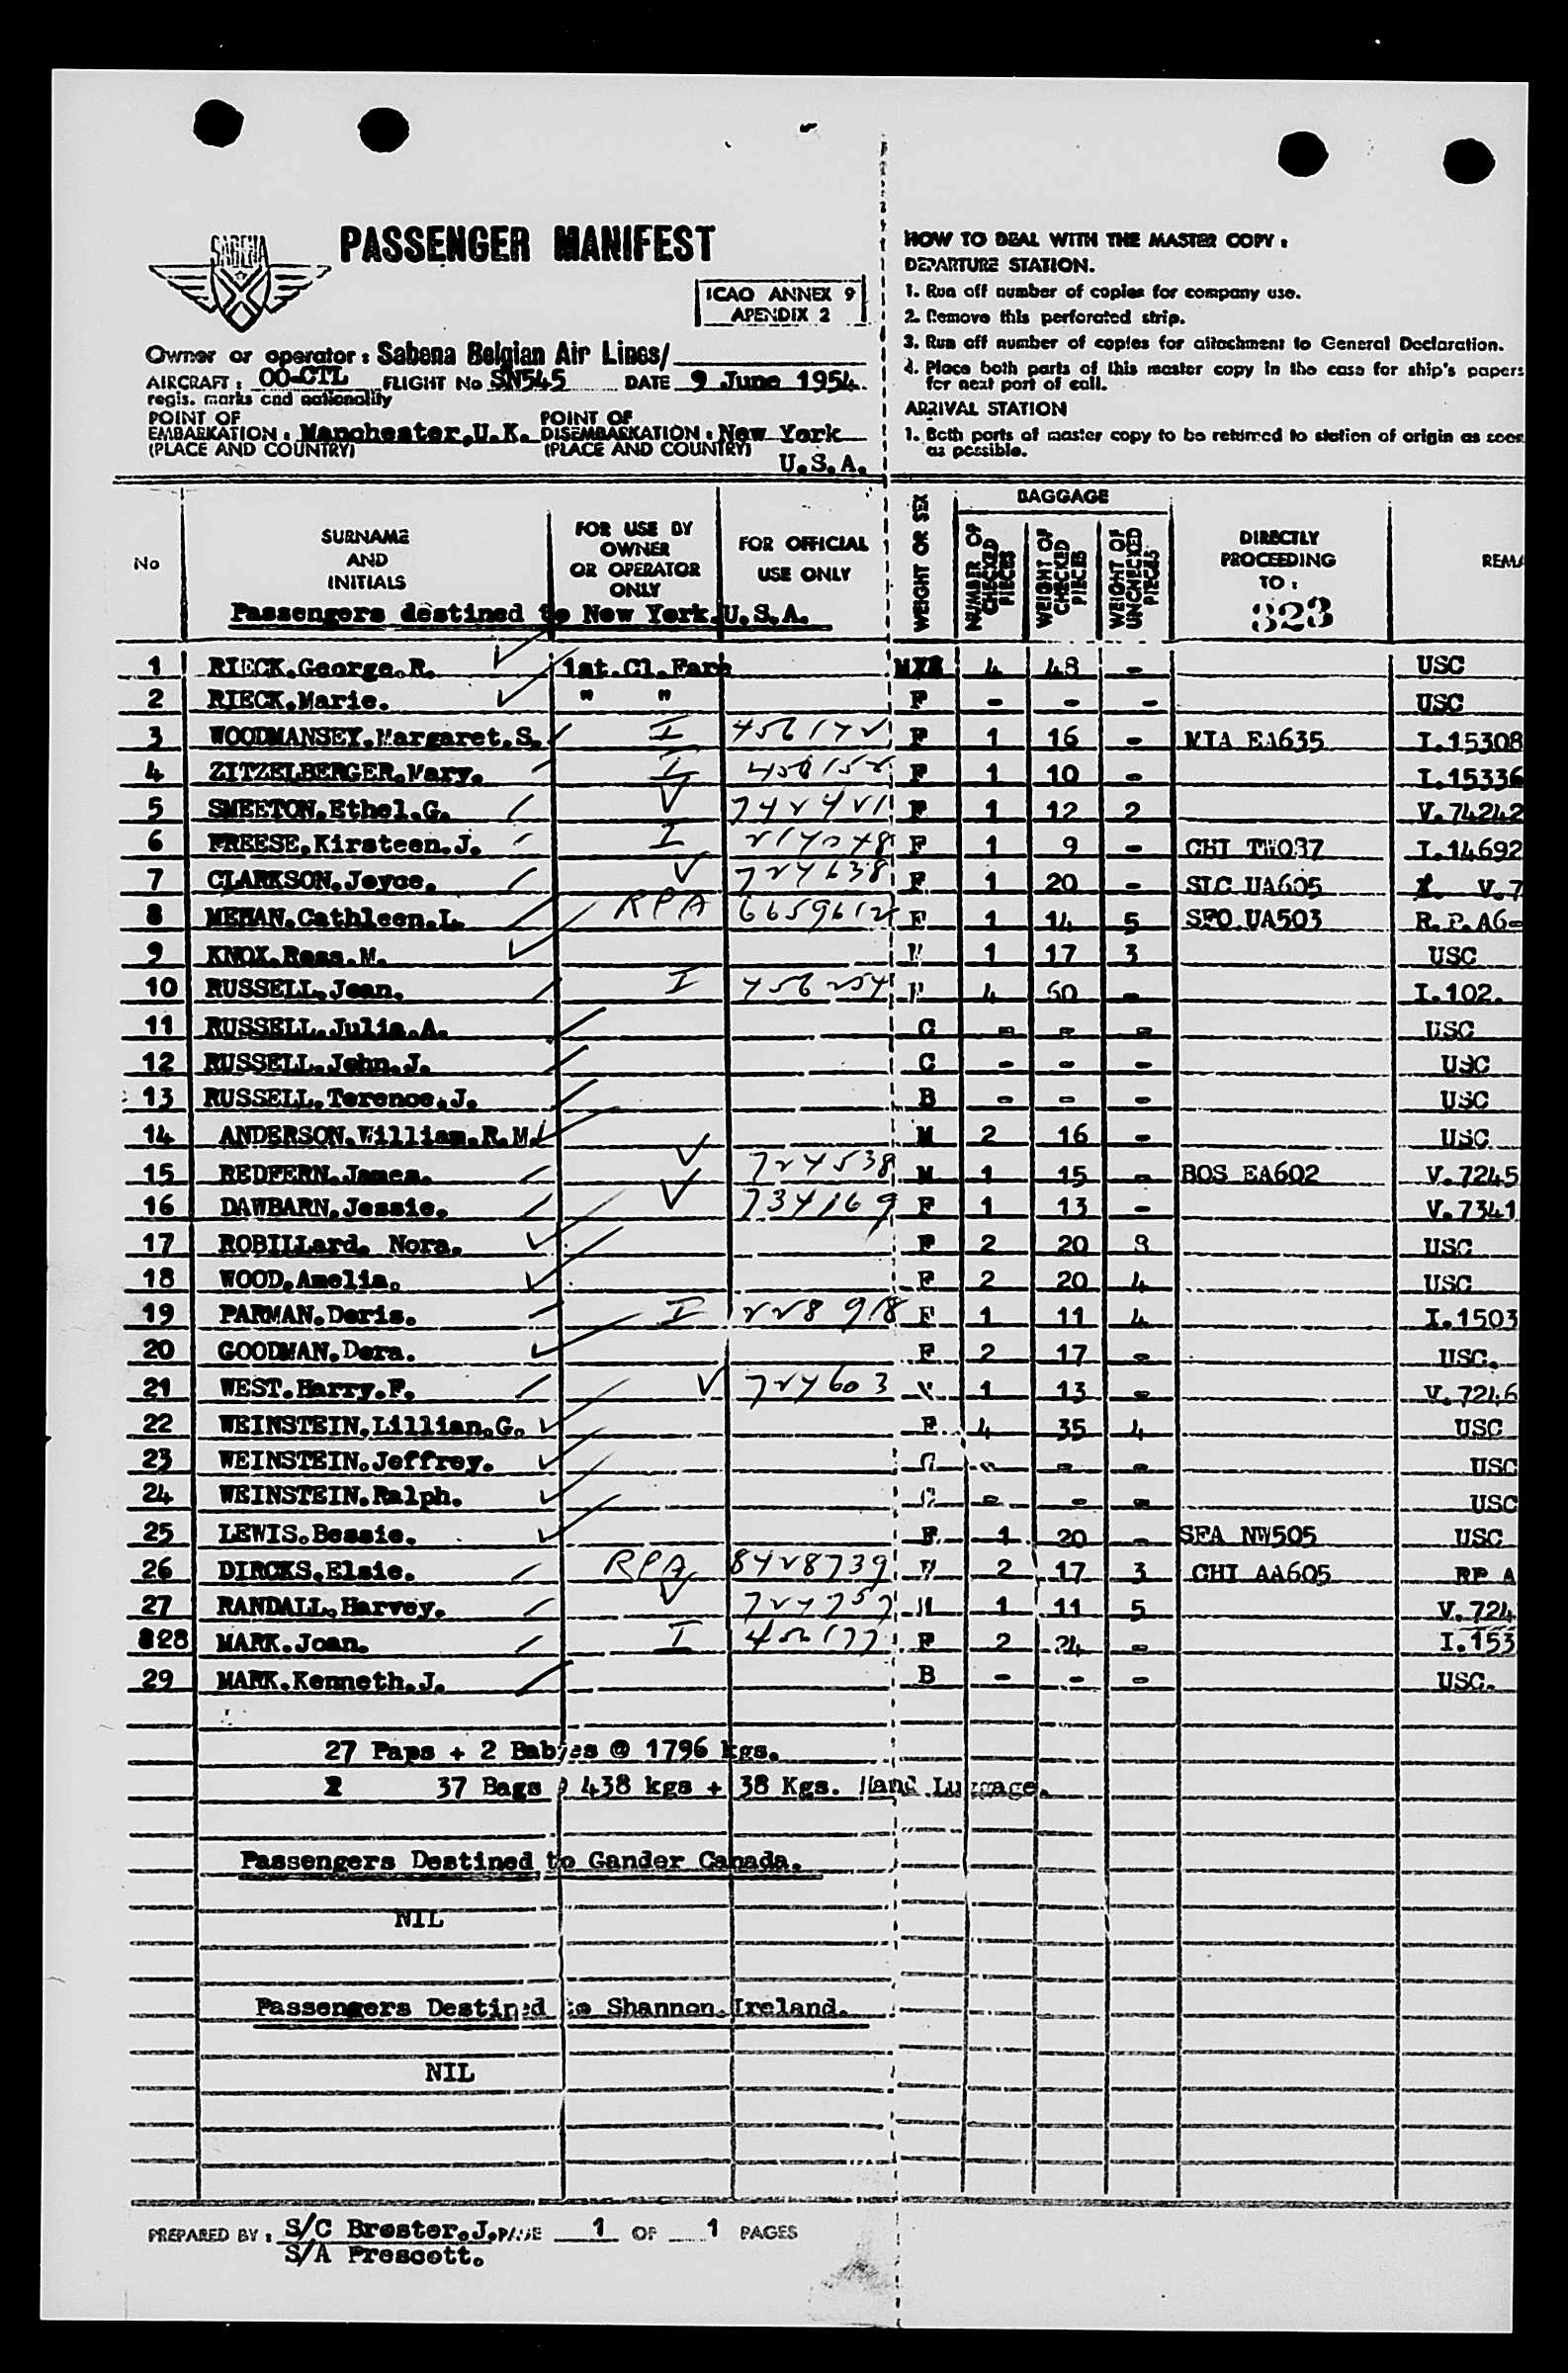 SABENA
PASSENGER MANIFEST
ICAO ANNEX 9
APENDIX 2
Owner or operator : Sabena Belgian Air Lines/
AIRCRAFT : OO-CTL FLIGHT No SN545 DATE 9 June 1954.
regis. marks and nationality
POINT OF EMBARKATION : Manchester,U.K. POINT OF DISEMBARKATION : New York
(PLACE AND COUNTRY) (PLACE AND COUNTRY) U.S.A.
HOW TO DEAL WITH THE MASTER COPY :
DEPARTURE STATION.
1. Run off number of copies for company use.
2. Remove this perforated strip.
3. Run off number of copies for attachment to General Declaration.
4. Place both parts of this master copy in the case for ship's papers
for next port of call.
ARRIVAL STATION
1. Both parts of master copy to be returned to station of origin as soon
as possible.
No SURNAME AND INITIALS FOR USE BY OWNER OR OPERATOR ONLY FOR OFFICIAL USE ONLY WEIGHT OR SEX BAGGAGE NUMBER OF CHECKED PIECES WEIGHT OF CHECKED PIECES WEIGHT OF UNCHECKED PIECES DIRECTLY PROCEEDING TO : REMA
323
Passengers destined to New York.U.S.A.
1 RIECK.George.R. 1st.Cl.Fare 4 48 - USC
2 RIECK.Marie. " " F - - - USC
3 WOODMANSEY.Margaret.S. I F 1 16 - MIA EA635 I.15308
4 ZITZELBERGER.Mary. I F 1 10 - I.15336
5 SMEETON.Ethel.G. V 7424421 F 1 12 2 V.74242
6 FREESE.Kirsteen.J. I F 1 9 - CHI TW037 I.14692
7 CLARKSON.Joyce. V 724638 F 1 20 - SLC UA605 V.7
8 MEHAN.Cathleen.L. RPA 6659612 F 1 14 5 SFO.UA503 R.P.A6-
9 KNOX.Ross.M. M 1 17 3 USC
10 RUSSELL.Jean. I 456254 F 4 60 - I.102.
11 RUSSELL.Julia.A. C - - - USC
12 RUSSELL.John.J. C - - - USC
13 RUSSELL.Terence.J. B - - - USC
14 ANDERSON.William.R.M. M 2 16 - USC
15 REDFERN.James. V 724538 M 1 15 - BOS EA602 V.7245
16 DAWBARN.Jessie. V 734169 F 1 13 - V.7341
17 ROBILLard. Nora. F 2 20 8 USC
18 WOOD.Amelia. F 2 20 4 USC
19 PARMAN.Doris. I 228918 F 1 11 4 I.1503
20 GOODMAN.Dora. F 2 17 - USC.
21 WEST.Harry.F. V 724603 M 1 13 - V.7246
22 WEINSTEIN.Lillian.G. F 4 35 4 USC
23 WEINSTEIN.Jeffrey. C - - - USC
24 WEINSTEIN.Ralph. C - - - USC
25 LEWIS.Bessie. F 1 20 - SEA NW505 USC
26 DIRCKS.Elsie. RPA 8428739 F 2 17 3 CHI AA605 RP A
27 RANDALL.Harvey. V 724757 M 1 11 5 V.724
28 MARK.Joan. I 456177 F 2 24 - I.153
29 MARK.Kenneth.J. B - - - USC.
27 Paps + 2 Babies @ 1796 kgs.
37 Bags @ 438 kgs + 38 Kgs. Hand Luggage.
Passengers Destined to Gander Canada.
NIL
Passengers Destined to Shannon.Ireland.
NIL
PREPARED BY : S/C Brester.J. PAGE 1 OF 1 PAGES
S/A Prescott.